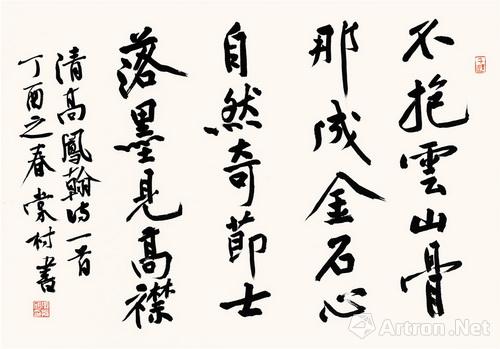 不抱雲山骨
那成金石心
自然奇節士
落墨見高襟
清高鳳翰诗一首
丁酉之春蒙村書
雅昌艺术网
Artron.Net